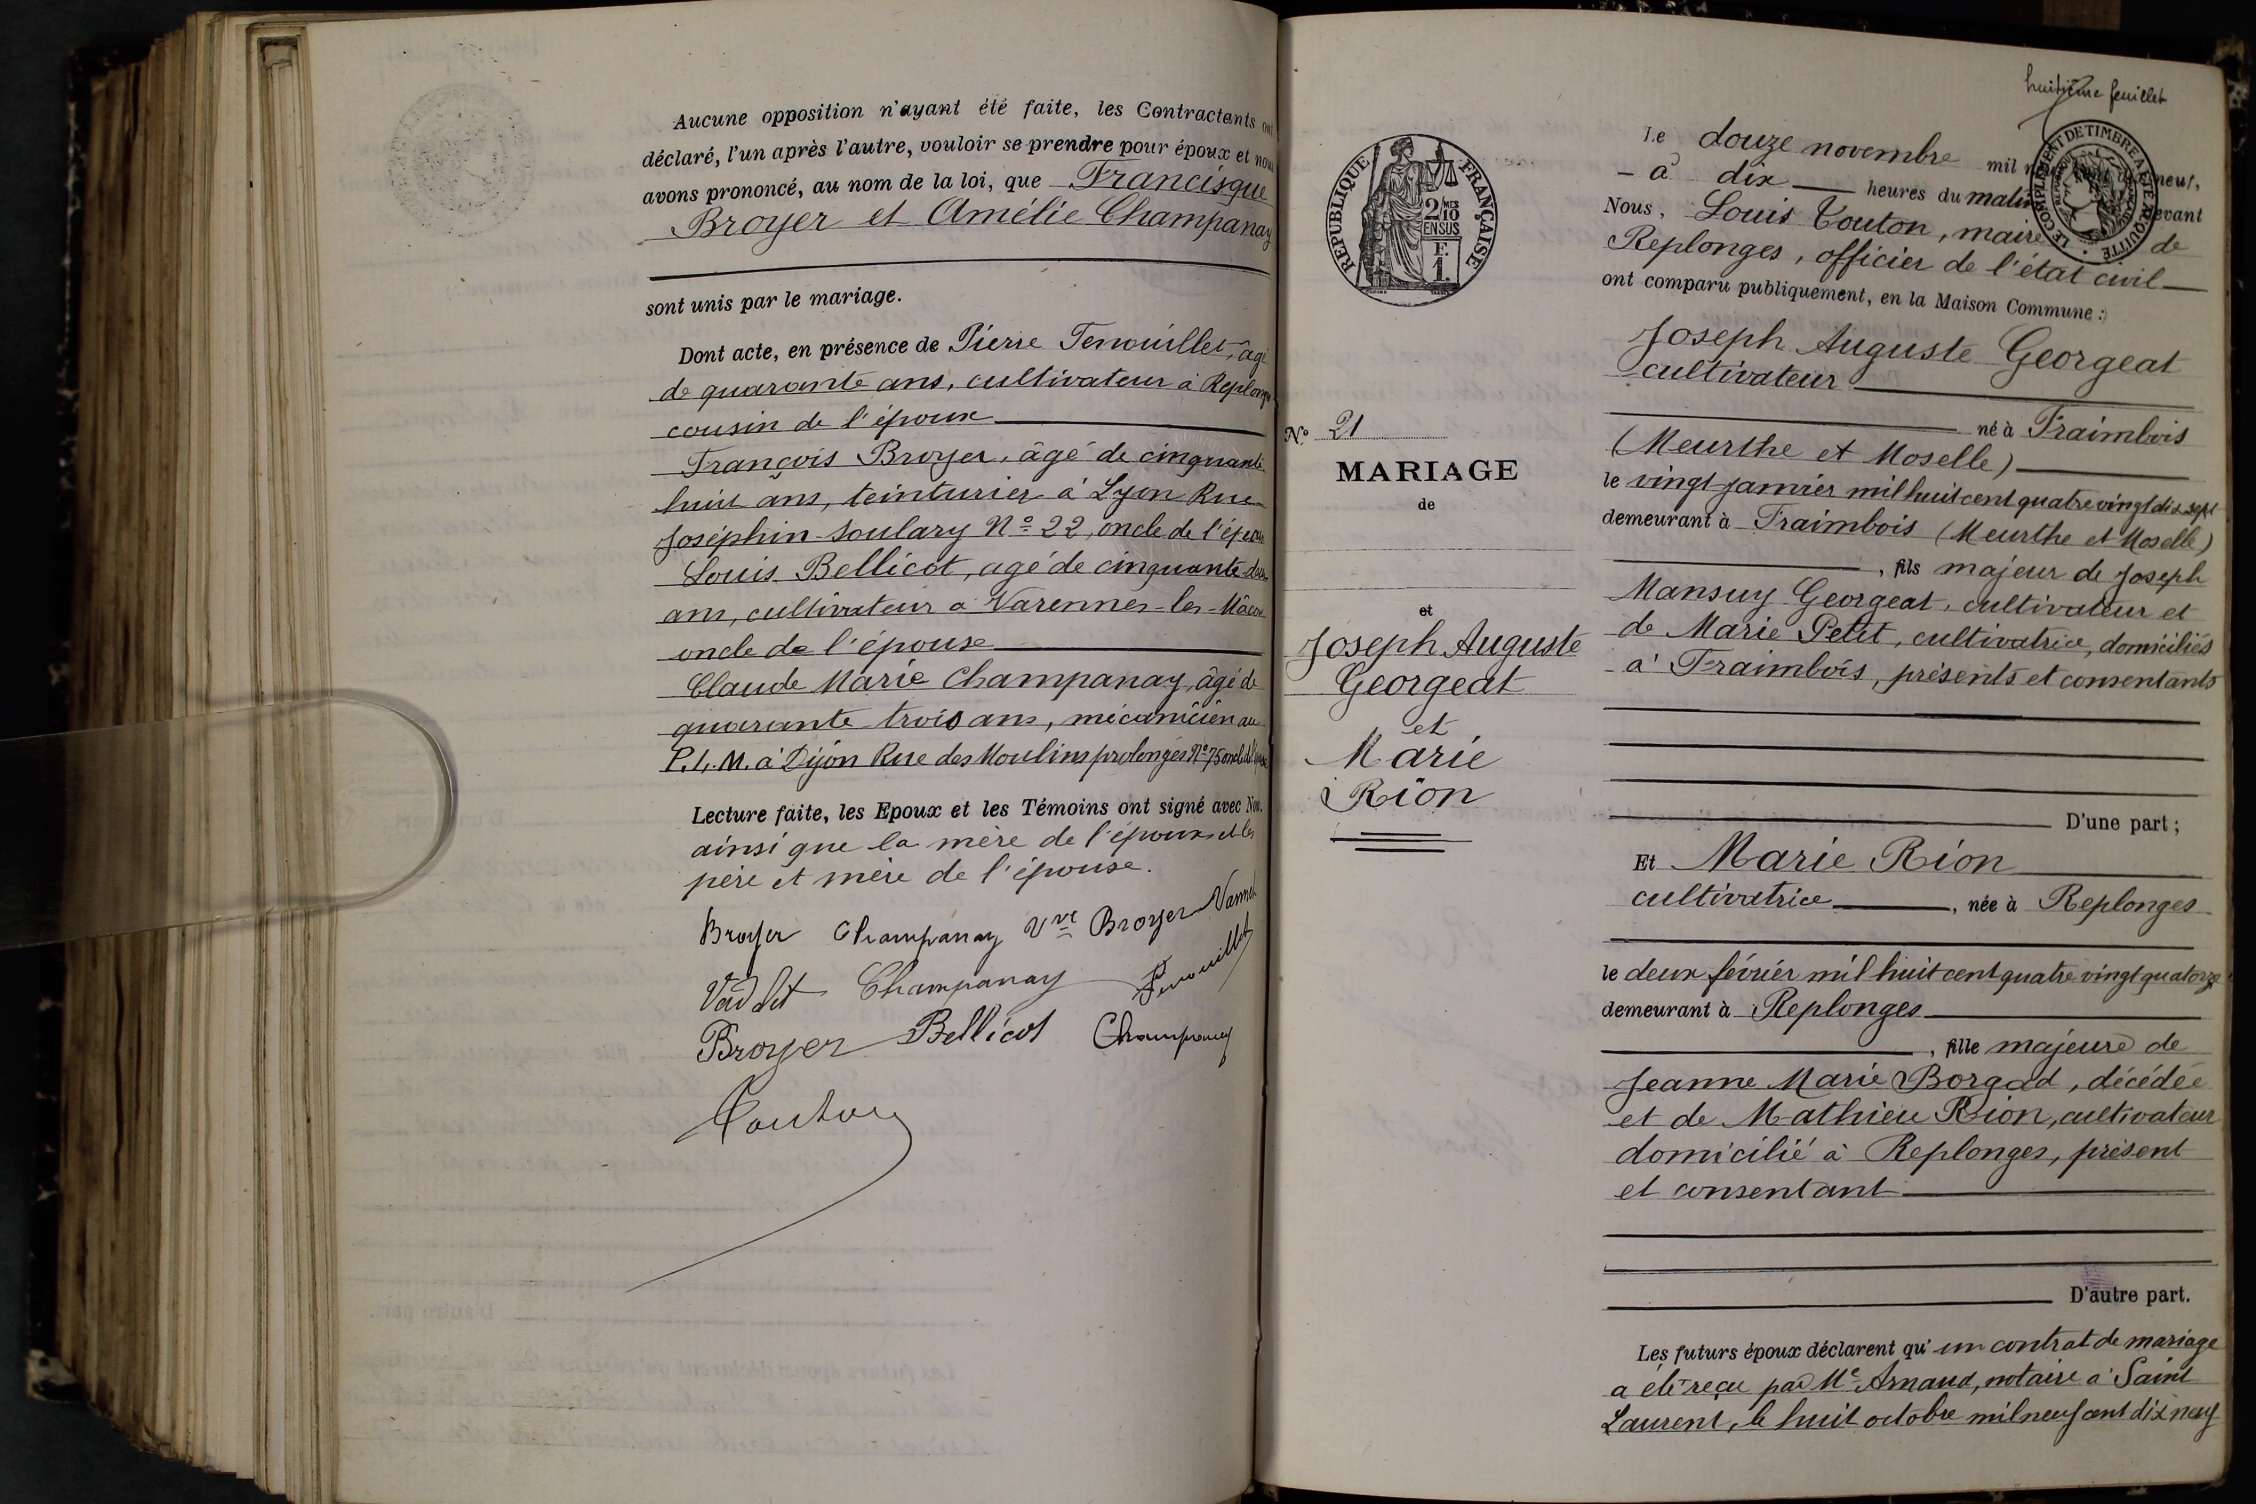 Aucune opposition n'ayant été faite, les Contractants ont
déclaré, l'un après l'autre, vouloir se prendre pour époux et nous
avons prononcé, au nom de la loi, que Francisque
Broyer et Amélie Champanay
sont unis par le mariage.
Dont acte, en présence de Pierre Tenouillet, âgé
de quarante ans, cultivateur à Replonges
cousin de l'époux
François Broyer, âgé de cinquante
huit ans, teinturier à Lyon Rue
Joséphin-Soulary No 22, oncle de l'époux
Louis Bellicot, agé de cinquante-deux
ans, cultivateur a Varennes-les-Mâcon
oncle de l'épouse
Claude Marie Champanay, âgé de
quarante trois ans, mécanicien au
P.L.M. à Dijon Rue des Moulins prolongés No 75 oncle de l'épouse
Lecture faite, les Epoux et les Témoins ont signé avec Nou.
ainsi que la mère de l'époux et les
père et mère de l'épouse.
Broyer Champanay Vve Broyer Vannet
Champanay Tenouillet
Broyer Bellicot Champanay
Touton
RÉPUBLIQUE FRANÇAISE
2/10 MES
EN SUS
F.
1.
No 21
MARIAGE
de
et
Joseph Auguste
Georgeat
et
Marie
Rion
huitième feuillet
LE COMPLÉMENT DE TIMBRE A ÉTÉ ACQUITTÉ
Le douze novembre mil neuf cent dix neuf,
- à dix heures du matin devant
Nous, Louis Touton, maire de
Replonges, officier de l'état civil
ont comparu publiquement, en la Maison Commune :
Joseph Auguste Georgeat
cultivateur
né à Fraimbois
(Meurthe et Moselle)
le vingt janvier mil huit cent quatre vingt dix sept
demeurant à Fraimbois (Meurthe et Moselle)
, fils majeur de Joseph
Mansuy Georgeat, cultivateur et
de Marie Petit, cultivatrice, domiciliés
à Fraimbois, présents et consentants
D'une part ;
Et Marie Rion
cultivatrice, née à Replonges
le deux février mil huit cent quatre vingt quatorze
demeurant à Replonges
, fille majeure de
Jeanne Marie Borgad, décédée
et de Mathieu Rion, cultivateur
domicilié à Replonges, présent
et consentant
D'autre part.
Les futurs époux déclarent qu'un contrat de mariage
a été reçu par Me Arnaud, notaire à Saint
Laurent, le huit octobre mil neuf cent dix neuf